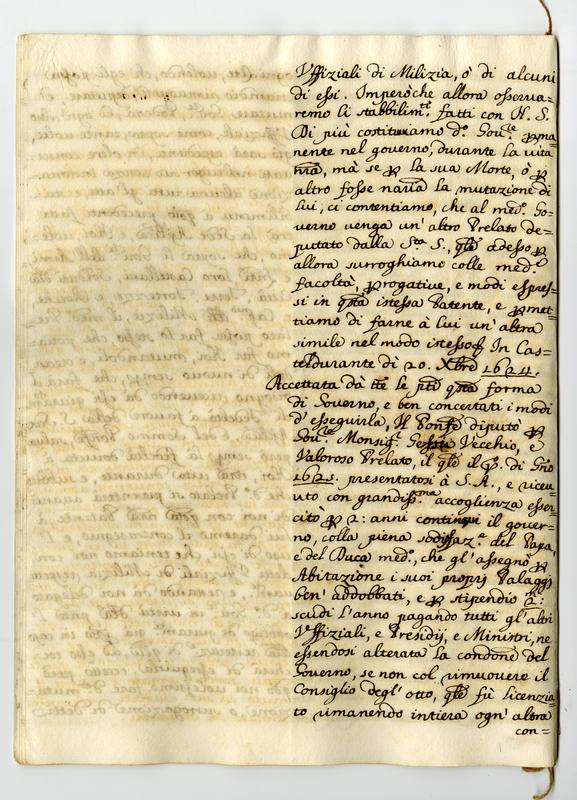 Uffiziali di Milizia, ò di alcuni
di essi. Imperòche allora osserva=
remo li stabbilim.ti fatti con N. S.
Di più costituiamo d.o Gov.re ꝑma
nente nel governo, durante la vita
nra, mà se ꝑ la sua Morte, ò ꝑ
altro fosse naria la mutazione di
lui, ci contentiamo, che al med.o Go=
verno venga un' altro Prelato De=
putato dalla S.ta S., qle adesso ꝑ
allora surroghiamo colle med.e
facoltà, ꝑrogative, e modi espres=
si in qsta istessa Patente, e ꝑmet=
tiamo di farne à lui un' altra
simile nel modo istesso In Cas=
teldurante di 20. Xbre 1624.
Accettata da tte le pti qsta forma
di Governo, e ben concertati i modi
d' esseguirla, Il Ponfe diputò ꝑ
Gov.re Monsig.r Vecchio, e
Valoroso Prelato, il qle il p.o di Gno
1625. presentatosi à S. A., e ricev=
uto con grandiss.ma accoglienza esser=
citò ꝑ 2: anni continui il gover=
no, colla piena sodisfaz.e del Papa,
e del Duca med.o, che gl' assegnò ꝑ
Abitazione i suoi proprj Palaggj
ben' addobbati, e ꝑ stipendio
scudi l'anno pagando tutti gl' altri
Uffiziali, e Presidij, e Ministri, ne
essendosi alterata la condone del
Governo, se non col rimuovere il
Consiglio degl' otto, qle fù licenzia
to rimanendo intiera ogn' altra
con=